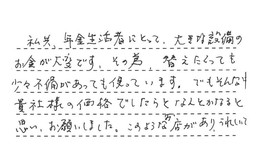 私共、年金生活者にとって、大きな設備の
お金が大変です。その為、替えたくっても
少々不備があっても使っています。でもそんな中
貴社様の価格でしたらとなんとかなると
思い、お願いしました。このようなお店がありうれしいで